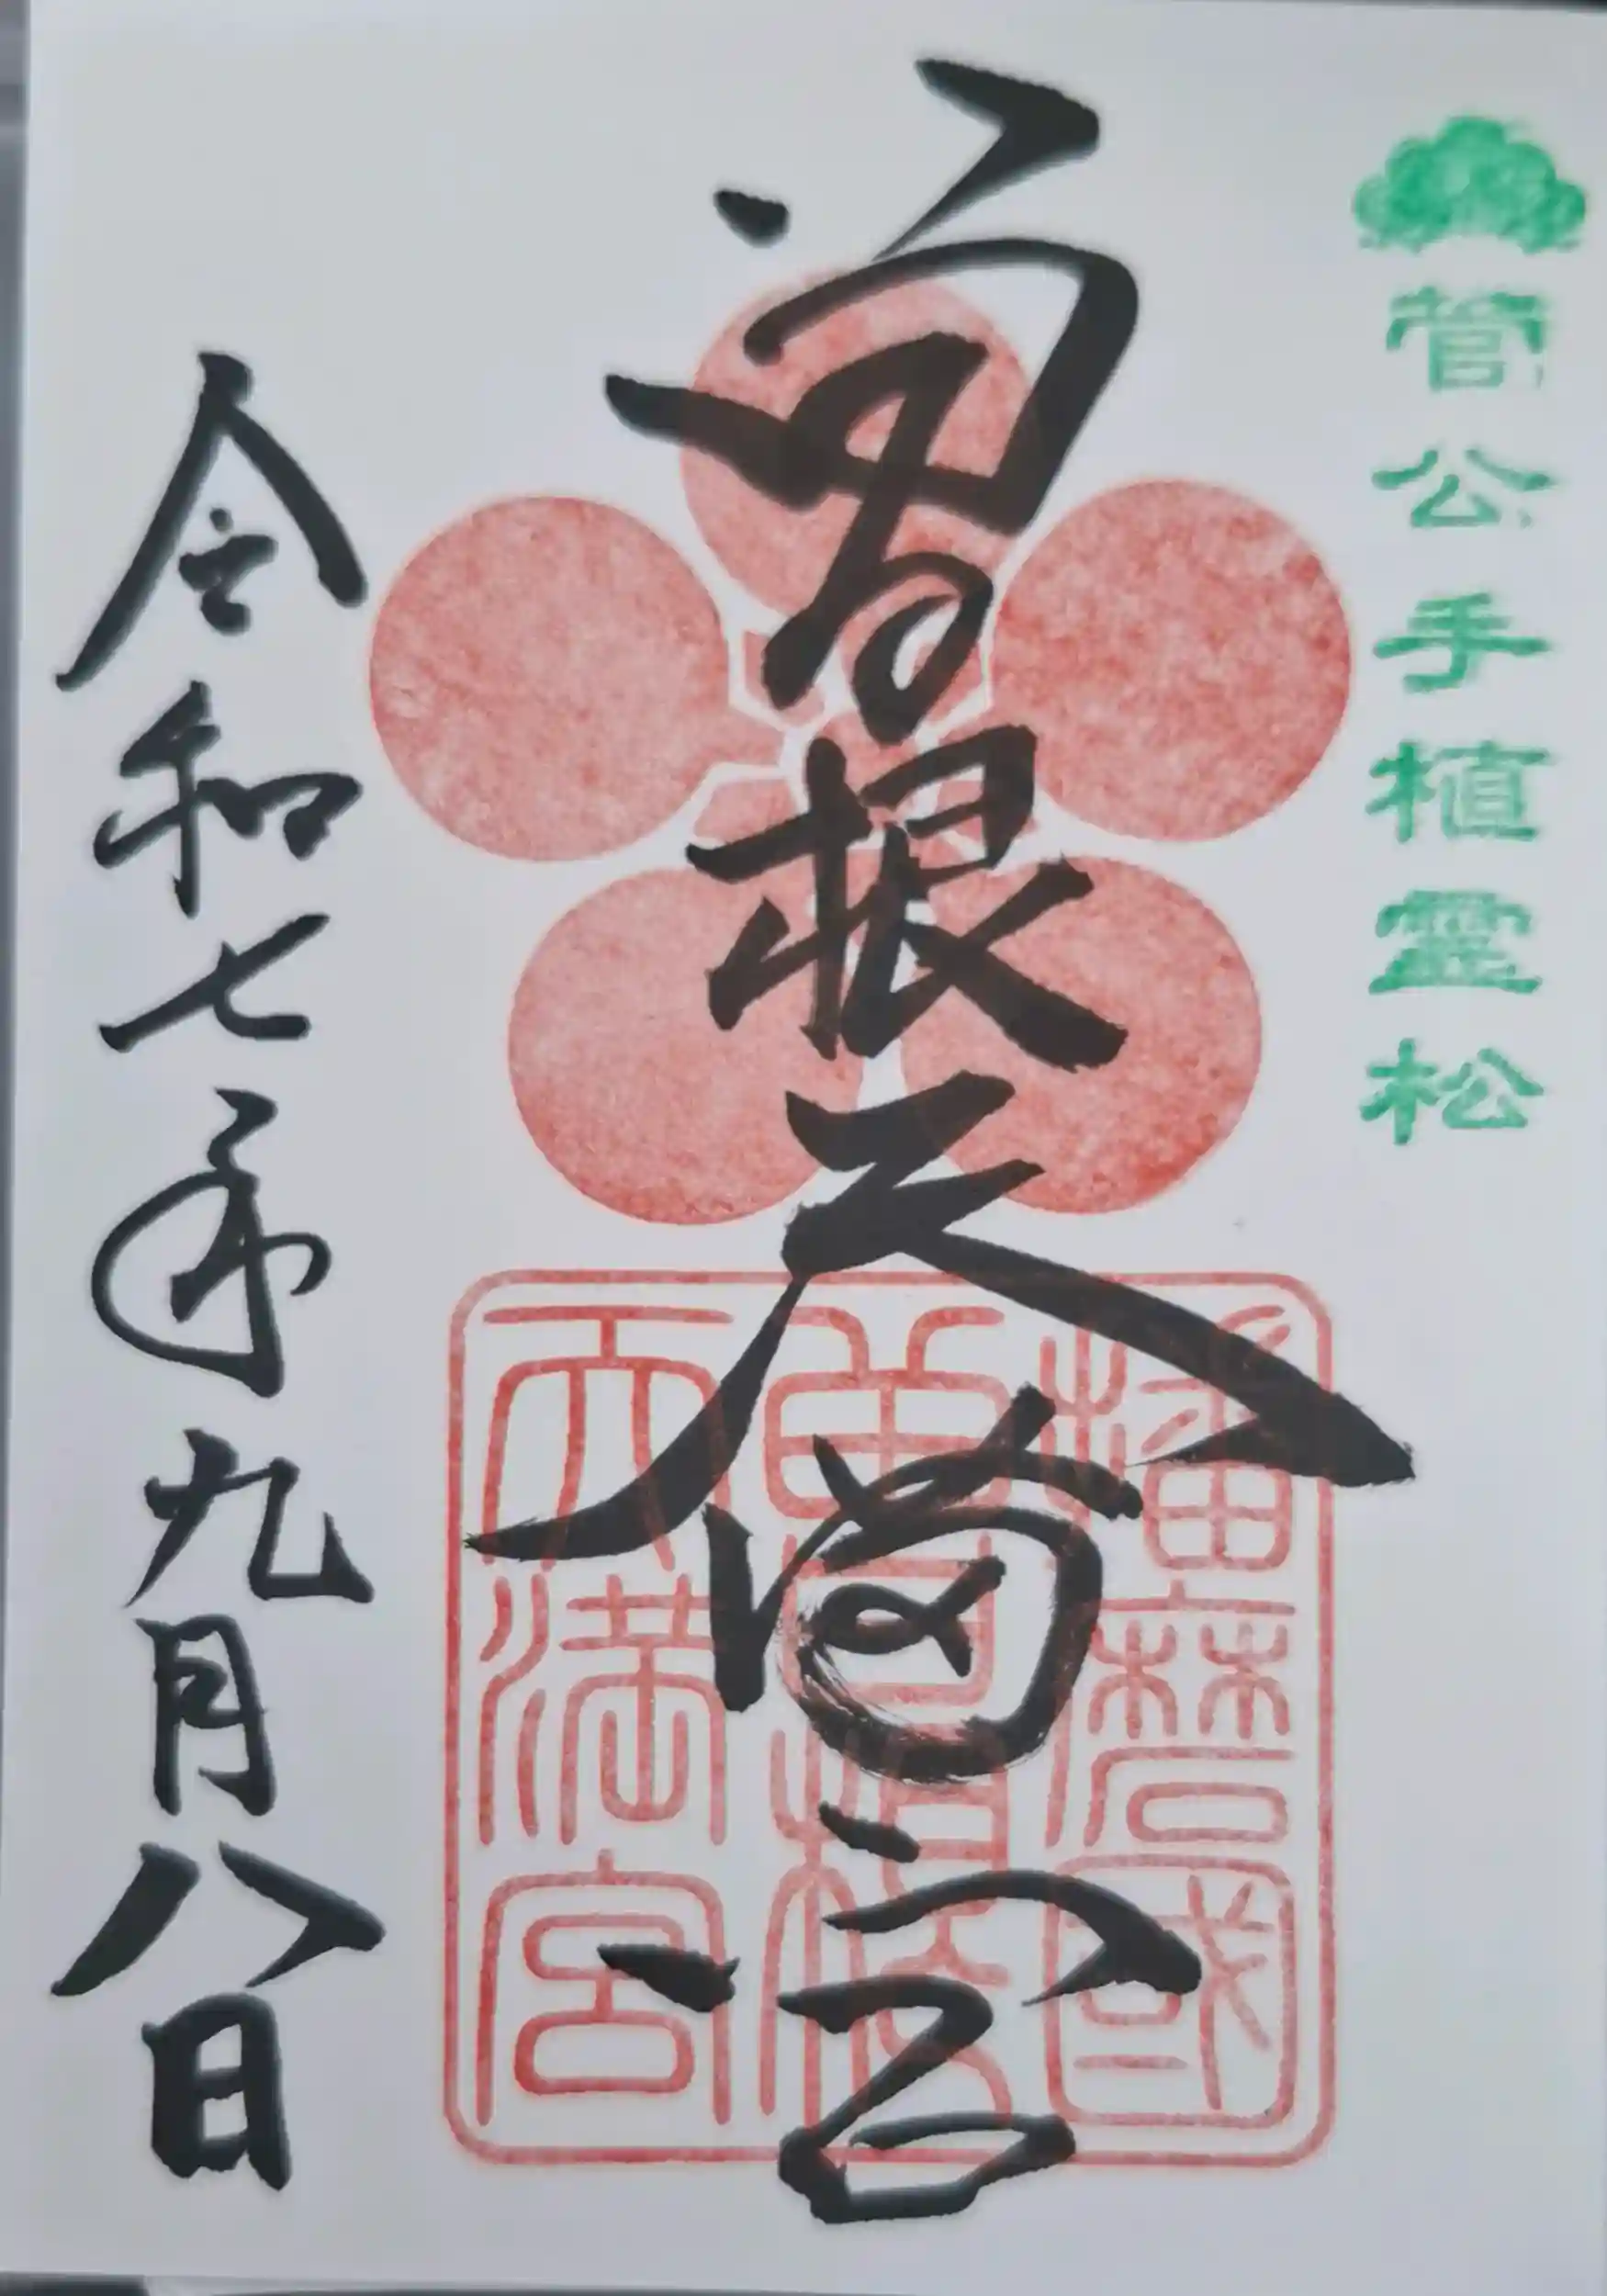 菅公手植霊松
曽根天満宮
播磨國
曽根
天満宮
令和七年九月八日